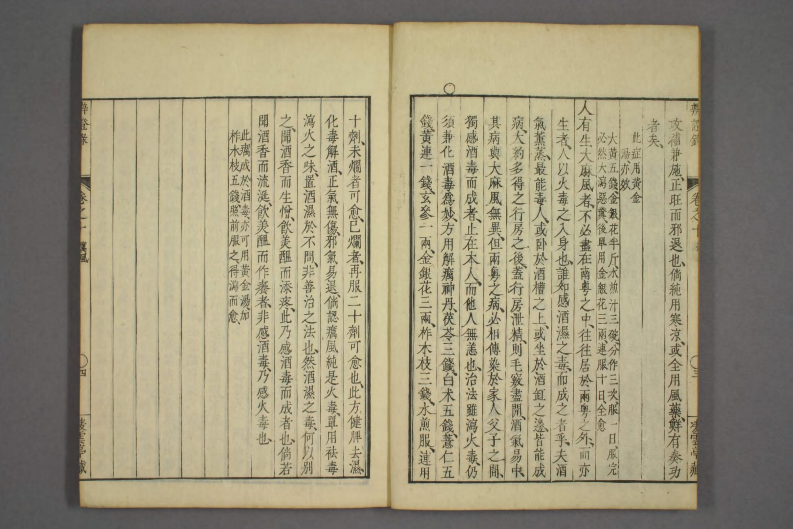 攻補兼施正旺而邪退也倘純用寒涼或全用風藥鮮有奏功
者矣
此症用黃金
湯亦效
大黃五錢金銀花半斤水煎汁三碗分作三次服一日服完
必然大瀉惡糞後單用金銀花三兩連服十日全愈
人有生大麻風者不必盡在兩粵之中往往居於兩粵之外而亦
生者人以火毒之入身也誰知感酒濕之毒而成之者乎夫酒
氣薰蒸最能毒人或臥於酒槽之上或坐於酒缸之邊皆能成
病大約多得之行房之後蓋行房泄精則毛竅盡開酒氣易中
其病與大麻風無異但兩粵之病必相傳染於家人父子之間
獨感酒毒而成者止在本人而他人無恙也治法雖瀉火毒仍
須兼化酒毒爲妙方用解癘神丹茯苓三錢白朮五錢薏仁五
錢黃連一錢玄參一兩金銀花三兩柞木枝三錢水煎服連用
十劑未爛者可愈已爛者再服二十劑可愈也此方健脾去濕
化毒解酒正氣無傷邪氣易退倘認癘風純是火毒單用祛毒
瀉火之味置酒濕於不問非善治之法也然酒濕之毒何以別
之聞酒香而生憎飲美醞而添疼此乃感酒毒而成者也倘若
聞酒香而流涎飲美醞而作癢者非感酒毒乃感火毒也
此癘成於酒毒亦可用黃金湯加
柞木枝五錢照前服之得瀉而愈
辨證錄
卷之十
癘風
四